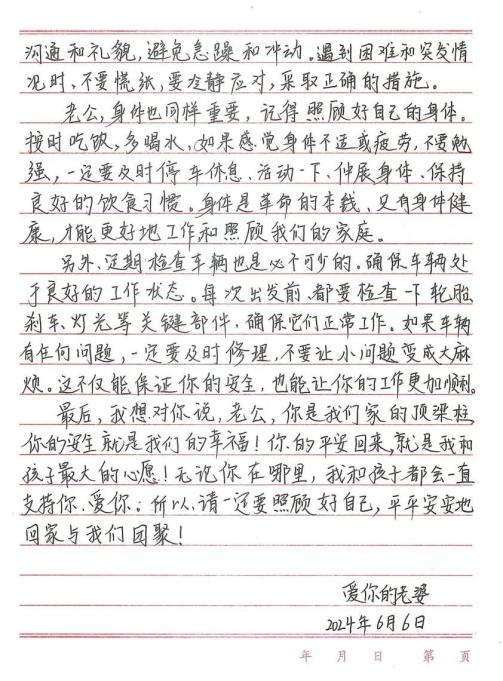 沟通和礼貌，避免急躁和冲动。遇到困难和突发情
况时，不要慌张，要冷静应对，采取正确的措施。
老公，身体也同样重要，记得照顾好自己的身体。
按时吃饭，多喝水，如果感觉身体不适或疲劳，不要勉
强，一定要及时停车休息、活动一下、伸展身体、保持
良好的饮食习惯。身体是革命的本钱、只有身体健
康，才能更好地工作和照顾我们的家庭。
另外、定期检查车辆也是必不可少的。确保车辆处
于良好的工作状态。每次出发前、都要检查一下轮胎、
刹车、灯光等关键部件，确保它们正常工作。如果车辆
有任何问题，一定要及时修理，不要让小问题变成大麻
烦。这不仅能保证你的安全，也能让你的工作更加顺利。
最后，我想对你说，老公，你是我们家的顶梁柱，
你的安全就是我们的幸福！你的平安回来，就是我和
孩子最大的心愿！无论你在哪里，我和孩子都会一直
支持你、爱你。所以、请一定要照顾好自己，平平安安地
回家与我们团聚！
爱你的老婆
2024年6月6日
年 月 日 第 页